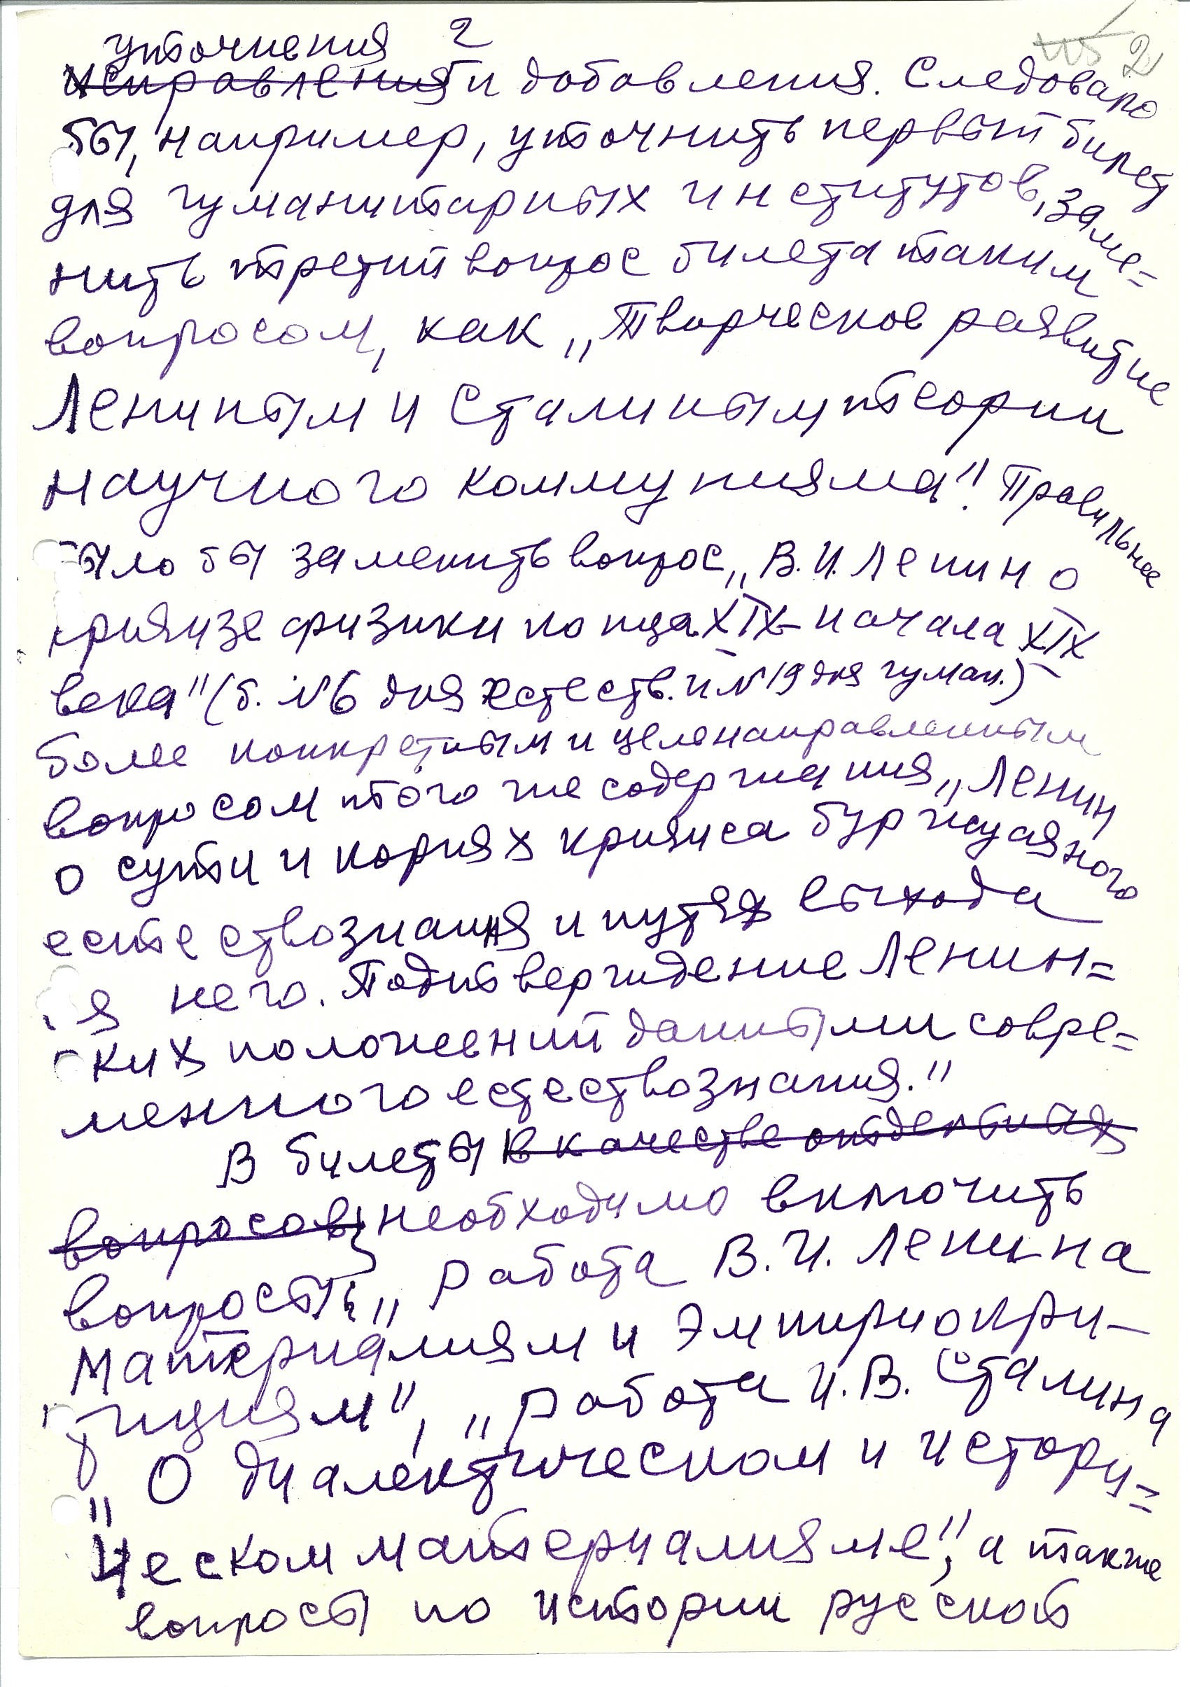 уточнения 2
исправления и добавления. Следовало
2
бы, например, уточнить первый билет
для гуманитарных институтов, заме=
нить третий вопрос билета таким
вопросом, как „Творческое развитие
Лениным и Сталиным теории
научного коммунизма". Правильнее
было бы заменить вопрос „В.И. Ленин о
кризизе физики конца XIX – начала XIX
века" (б. №6 для естеств. и №19 для гуман.)
более конкретным и целенаправленным
вопросом того же содержания „Ленин
о сути и корнях кризиса буржуазного
естествознания и путях выхода
из него. Подтверждение Ленин=
ских положений данными совре=
менного естествознания."
В билеты в качестве отдельных
вопросов необходимо включить
вопросы „работа В.И. Ленина
Материализм и Эмпириокри–
тицизм", „работа И.В. Сталина
„О диалектическом и истори=
ческом материализме", а также
вопросы по истории русской